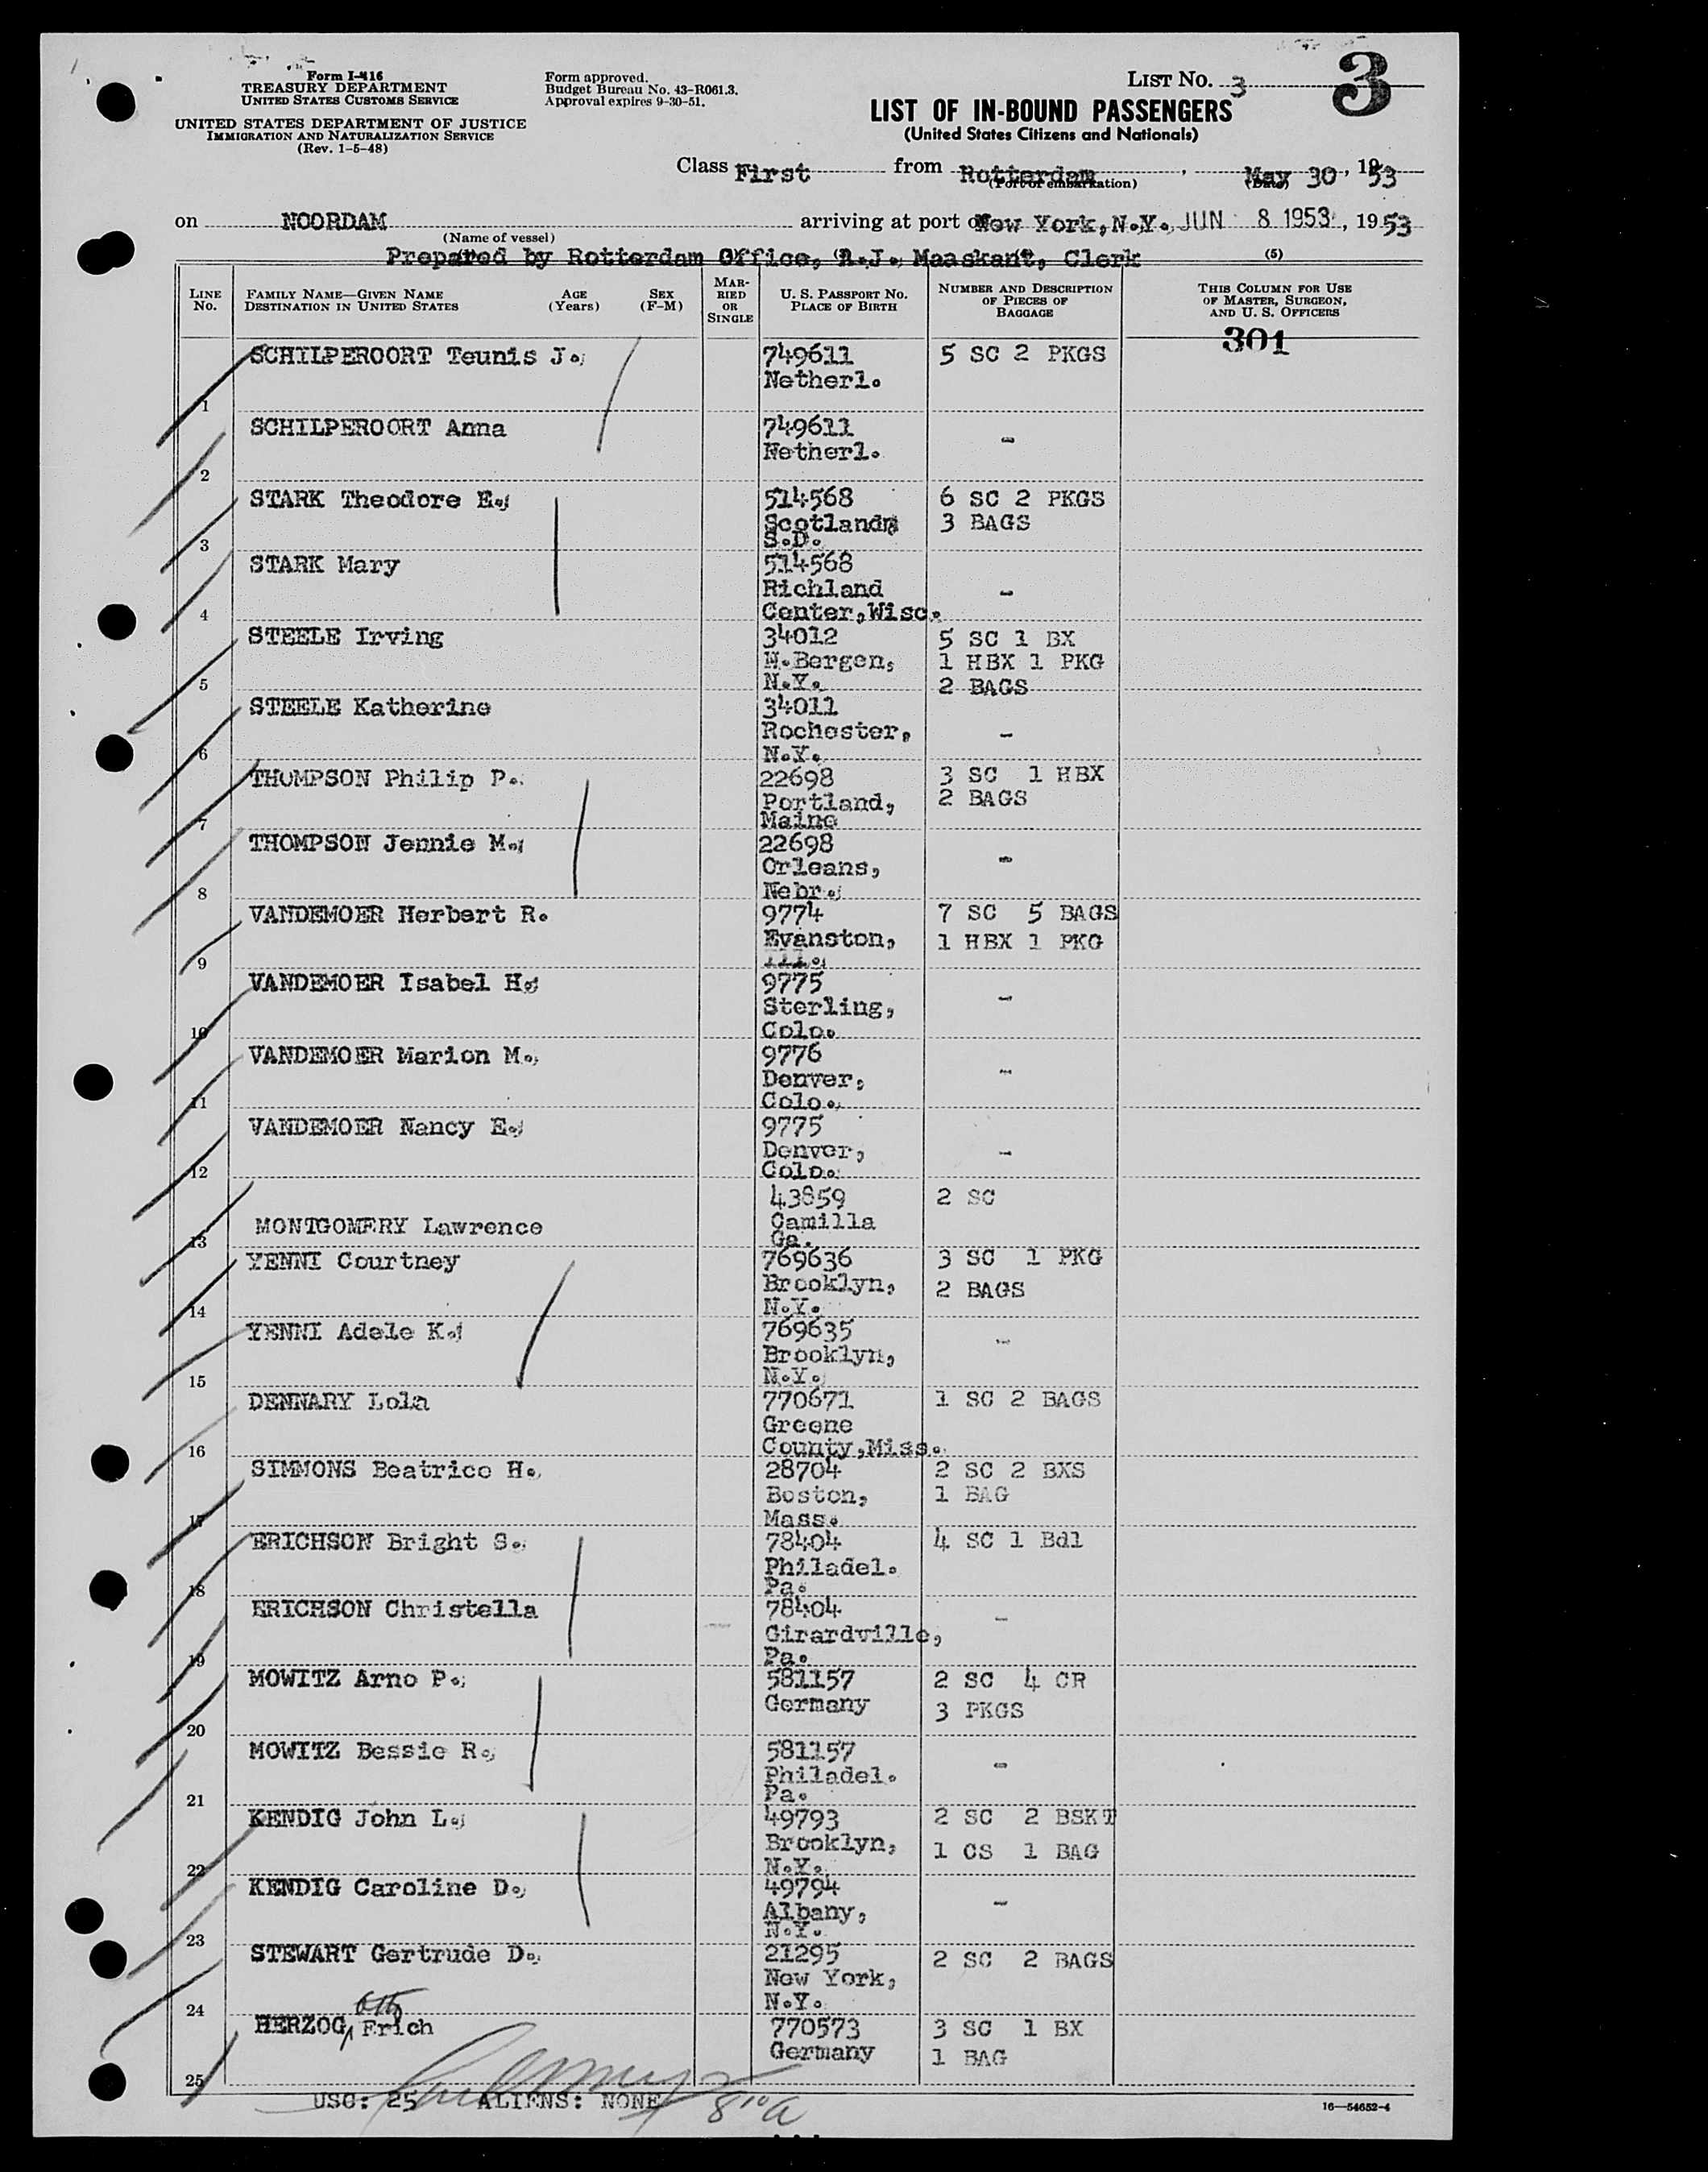 Form I-416
TREASURY DEPARTMENT
UNITED STATES CUSTOMS SERVICE
UNITED STATES DEPARTMENT OF JUSTICE
IMMIGRATION AND NATURALIZATION SERVICE
(Rev. 1-5-48)
Form approved.
Budget Bureau No. 43-R061.3.
Approval expires 9-30-51.
LIST NO. 3
3
LIST OF IN-BOUND PASSENGERS
(United States Citizens and Nationals)
Class First from Rotterdam, May 30, 1953
(Port of embarkation) (Date)
on NOORDAM arriving at port of New York, N.Y. JUN 8 1953, 1953
(Name of vessel)
Prepared by Rotterdam Office, A.J. Maaskant, Clerk (5)
LINE No. FAMILY NAME—GIVEN NAME DESTINATION IN UNITED STATES AGE (Years) SEX (F-M) MARRIED OR SINGLE U. S. PASSPORT NO. PLACE OF BIRTH NUMBER AND DESCRIPTION OF PIECES OF BAGGAGE THIS COLUMN FOR USE OF MASTER, SURGEON, AND U. S. OFFICERS
301
SCHILPEROORT Teunis J. 749611 5 SC 2 PKGS
Netherl.
1
SCHILPEROORT Anna 749611 -
Netherl.
2
STARK Theodore E. 514568 6 SC 2 PKGS
Scotland 3 BAGS
3 S.D.
STARK Mary 514568
Richland -
4 Center,Wisc.
STEELE Irving 34012 5 SC 1 BX
W.Bergen, 1 HBX 1 PKG
5 N.Y. 2 BAGS
STEELE Katherine 34011
Rochester, -
6 N.Y.
THOMPSON Philip P. 22698 3 SC 1 HBX
Portland, 2 BAGS
7 Maine
THOMPSON Jennie M. 22698
Orleans, -
8 Nebr.
VANDEMOER Herbert R. 9774 7 SC 5 BAGS
Evanston, 1 HBX 1 PKG
9 Ill.
VANDEMOER Isabel H. 9775
Sterling, -
10 Colo.
VANDEMOER Marion M. 9776
Denver, -
11 Colo.
VANDEMOER Nancy E. 9775
Denver, -
12 Colo.
43859 2 SC
MONTGOMERY Lawrence Camilla
13 Ga.
YENNI Courtney 769636 3 SC 1 PKG
Brooklyn, 2 BAGS
14 N.Y.
YENNI Adele K. 769635 -
Brooklyn,
15 N.Y.
DENNARY Lola 770671 1 SC 2 BAGS
Greene
16 County,Miss.
SIMMONS Beatrice H. 28704 2 SC 2 BXS
Boston, 1 BAG
17 Mass.
ERICHSON Bright S. 78404 4 SC 1 Bdl
Philadel.
18 Pa.
ERICHSON Christella 78404 -
Girardville,
19 Pa.
MOWITZ Arno P. 581157 2 SC 4 CR
Germany 3 PKGS
20
MOWITZ Bessie R. 581157 -
Philadel.
21 Pa.
KENDIG John L. 49793 2 SC 2 BSKT
Brooklyn, 1 CS 1 BAG
22 N.Y.
KENDIG Caroline D. 49794 -
Albany,
23 N.Y.
STEWART Gertrude D. 21295 2 SC 2 BAGS
New York,
24 N.Y.
HERZOG, Erich 770573 3 SC 1 BX
Germany 1 BAG
25
USC: 25 ALIENS: NONE
16—54652-4